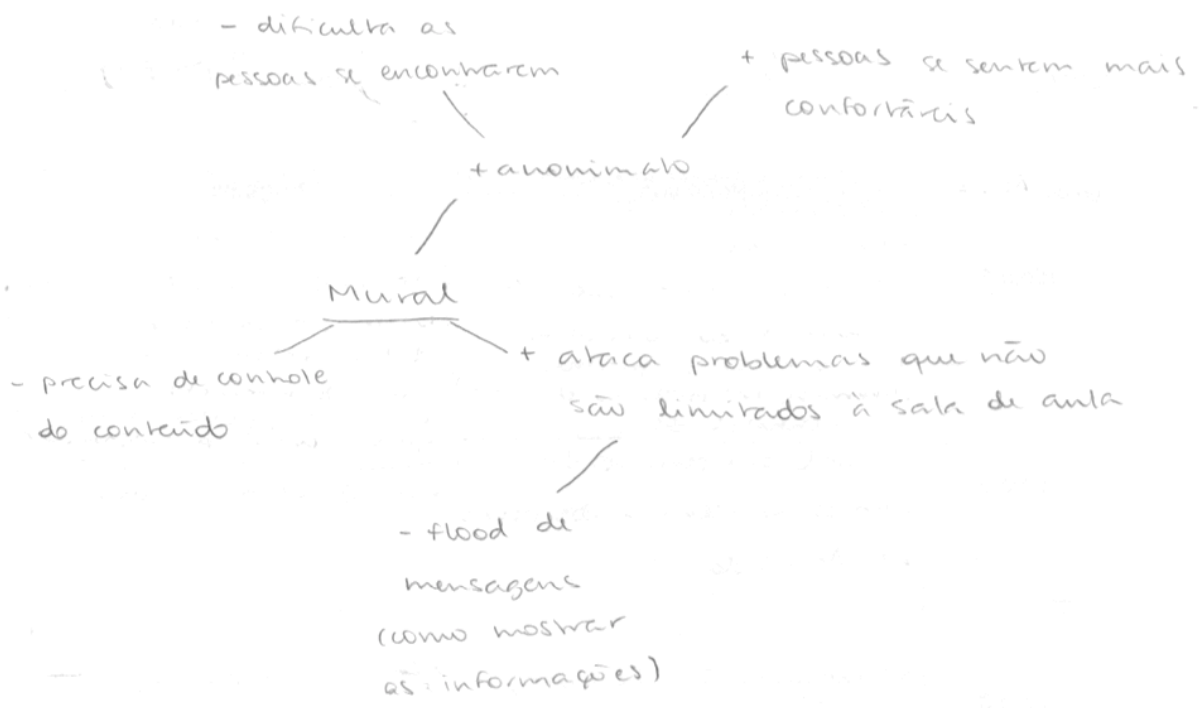 - dificulta as
pessoas se encontrarem
+ pessoas se sentem mais
confortáveis
+ anonimato
Mural
- precisa de controle
do conteúdo
+ ataca problemas que não
são limitados à sala de aula
- flood de
mensagens
(como mostrar
as informações)